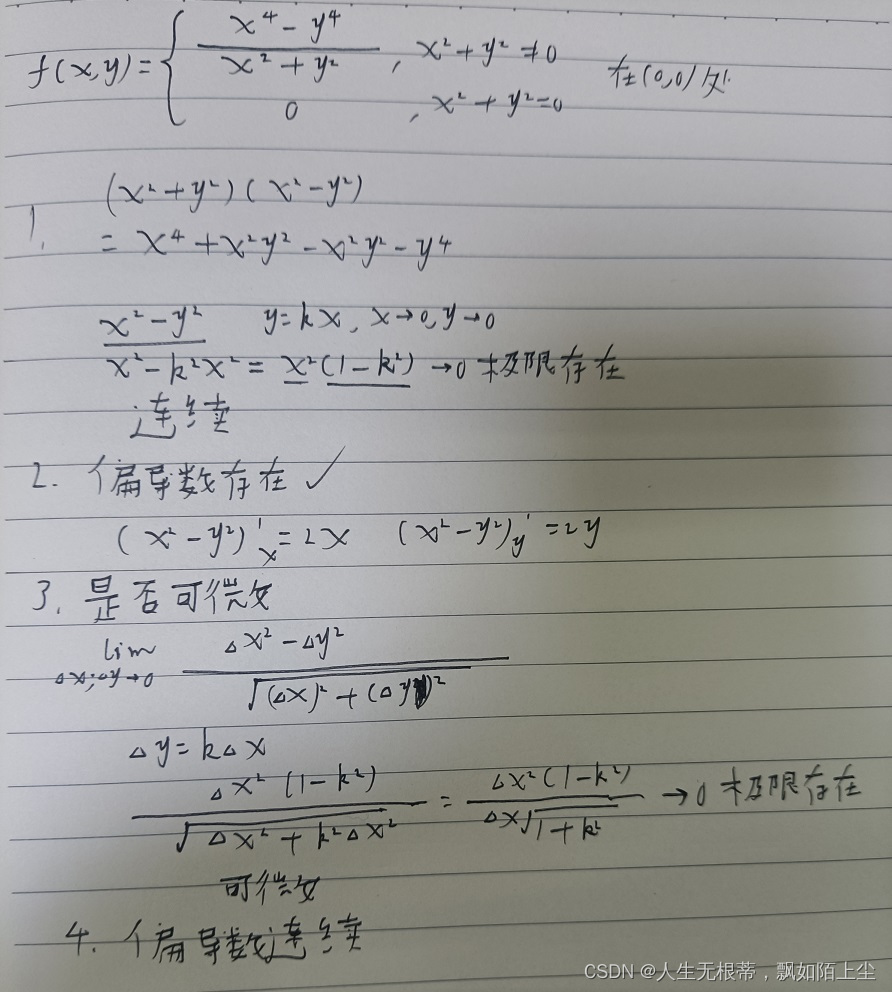 f(x,y)={ (x⁴-y⁴)/(x²+y²) , x²+y²≠0 在(0,0)处
0 , x²+y²=0
1. (x²+y²)(x²-y²)
= x⁴+x²y²-x²y²-y⁴
x²-y² y=kx, x→0, y→0
x²-k²x² = x²(1-k²) →0 极限存在
连续
2. 偏导数存在 ✓
(x²-y²)'ₓ=2x (x²-y²)'y=2y
3. 是否可微
lim Δx,Δy→0 (Δx²-Δy²)/√((Δx)²+(Δy)²)
Δy=kΔx
Δx²(1-k²)/√(Δx²+k²Δx²) = Δx²(1-k²)/(Δx√(1+k²)) →0 极限存在
可微
4. 偏导数连续
CSDN @人生无根蒂，飘如陌上尘